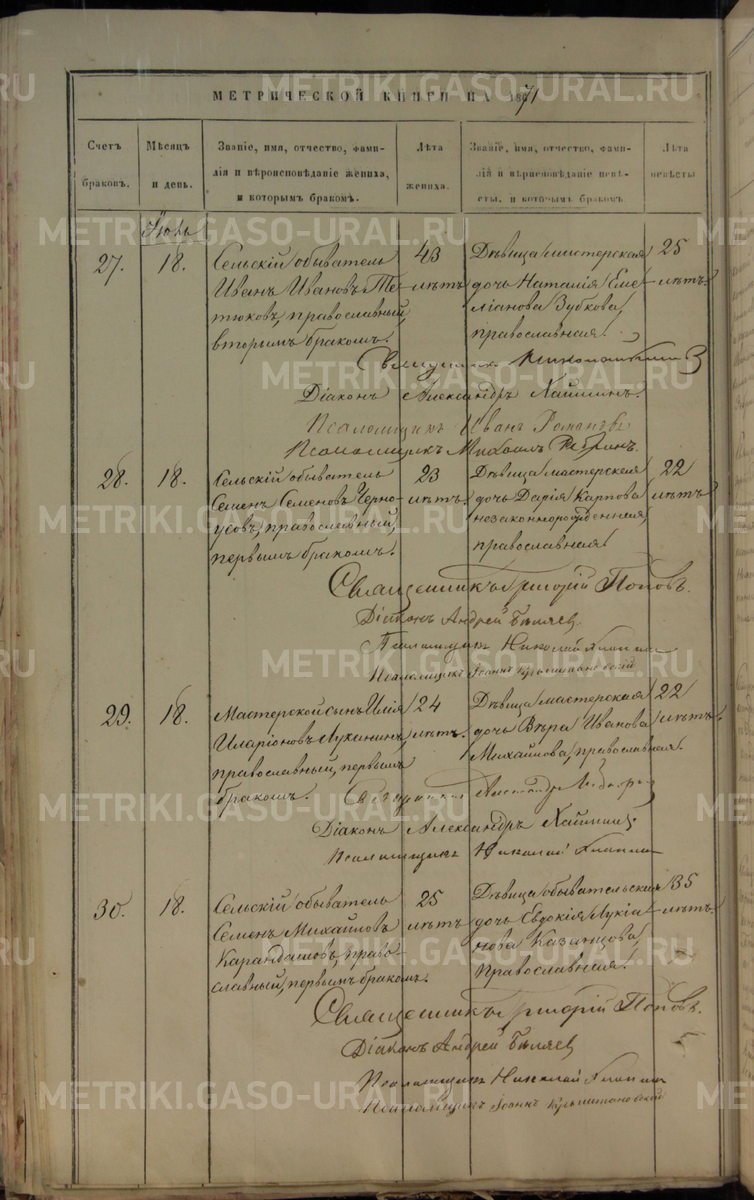 МЕТРИЧЕСКОЙ КНИГИ НА 1871
Счетъ браковъ.
Мѣсяцъ и день.
Званіе, имя, отчество, фамилія и вѣроисповѣданіе жениха, и которымъ бракомъ.
Лѣта жениха.
Званіе, имя, отчество, фамилій и вѣроисповѣданіе невѣсты, и которымъ бракомъ.
Лѣта невѣсты
27. 18. Сельскій обыватель 43 Дѣвица мастерская 25
Иванъ Ивановъ Те- лѣтъ дочь Наталія Еме- лѣтъ.
тюковъ, православный, ліанова Зубкова,
вторымъ бракомъ. православная.
Священникъ
Діаконъ Александръ Хайминъ.
Псаломщикъ Иванъ Романовъ
Псаломщикъ Михаилъ
28. 18. Сельскій обыватель 23 Дѣвица мастерская 22
Семенъ Семеновъ Черно- лѣтъ. дочь Дарія Карпова лѣтъ
усовъ, православный, незаконнорожденная,
первымъ бракомъ. православная.
Священникъ Григорій Поповъ.
Діаконъ Андрей Бѣляев
Псаломщик Николай
Псаломщикъ Іоаннъ
29. 18. Мастерской сынъ Илія 24 Дѣвица мастерская 22
Иларіоновъ Луканинъ, лѣтъ. дочь Вѣра Иванова лѣтъ.
православный, первымъ Михайлова, православная.
бракомъ. Священникъ
Діаконъ Александръ Хайминъ.
Псаломщикъ Николай
30. 18. Сельскій обыватель 25 Дѣвица обывательская 35
Семенъ Михайловъ лѣтъ дочь Евдокія Лукіа- лѣтъ.
Карандашовъ, право- нова Казанцова,
славный, первымъ бракомъ. Православная.
Священникъ Григорій Поповъ.
Діаконъ Андрей Бѣляев
Псаломщик Николай
Псаломщикъ Іоаннъ
METRIKI.GASO-URAL.RU